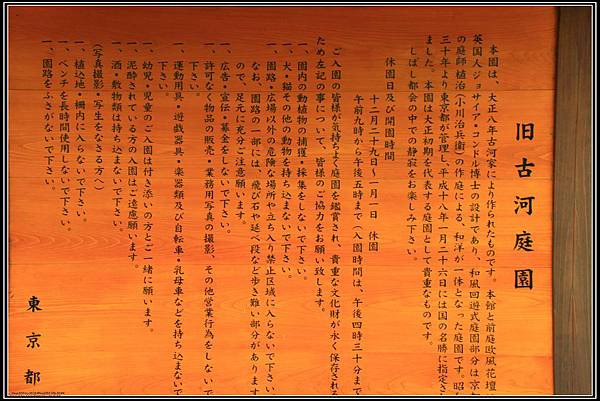 旧古河庭園
本園は、大正八年古河家により作られたものです。本館と前庭欧風花壇
英国人ジョサイア・コンドル博士の設計であり、和風回遊式庭園部分は京
の庭師植治(小川治兵衛)の作庭による、和洋が一体となった庭園です。昭
三十年より東京都が管理し、平成十八年一月二十六日には国の名勝に指定さ
ました。本園は大正初期を代表する庭園として貴重なものです。
しばし都会の中での静寂をお楽しみ下さい。
休園日及び開園時間
十二月二十九日〜一月一日 休園
午前九時から午後五時まで(入園時間は、午後四時三十分まで
ご入園の皆様が気持ちよく庭園を鑑賞され、貴重な文化財が永く保存される
ため左記の事について、皆様のご協力をお願い致します。
一、園内の動植物の捕獲・採集をしないで下さい。
一、犬・猫その他の動物を持ち込まないで下さい。
一、園路・広場以外の危険な場所や立ち入り禁止区域に入らないで下さい。
なお、園路の一部には、飛び石や延べ段など歩き難い部分があります
ので、足元に充分ご注意願います。
一、広告・宣伝・募金をしないで下さい。
一、許可なく物品の販売、業務用写真の撮影、その他営業行為をしないで
下さい。
一、運動用具・遊戯器具・楽器類及び自転車・乳母車などを持ち込まないで
下さい。
一、幼児・児童のご入園は付き添いの方とご一緒に願います。
一、泥酔されている方の入園はご遠慮願います。
一、酒・敷物類は持ち込まないで下さい。
(写真撮影・写生をなさる方へ)
一、植込地・柵内に入らないで下さい。
一、ベンチを長時間使用しないで下さい。
一、園路をふさがないで下さい。
東京都